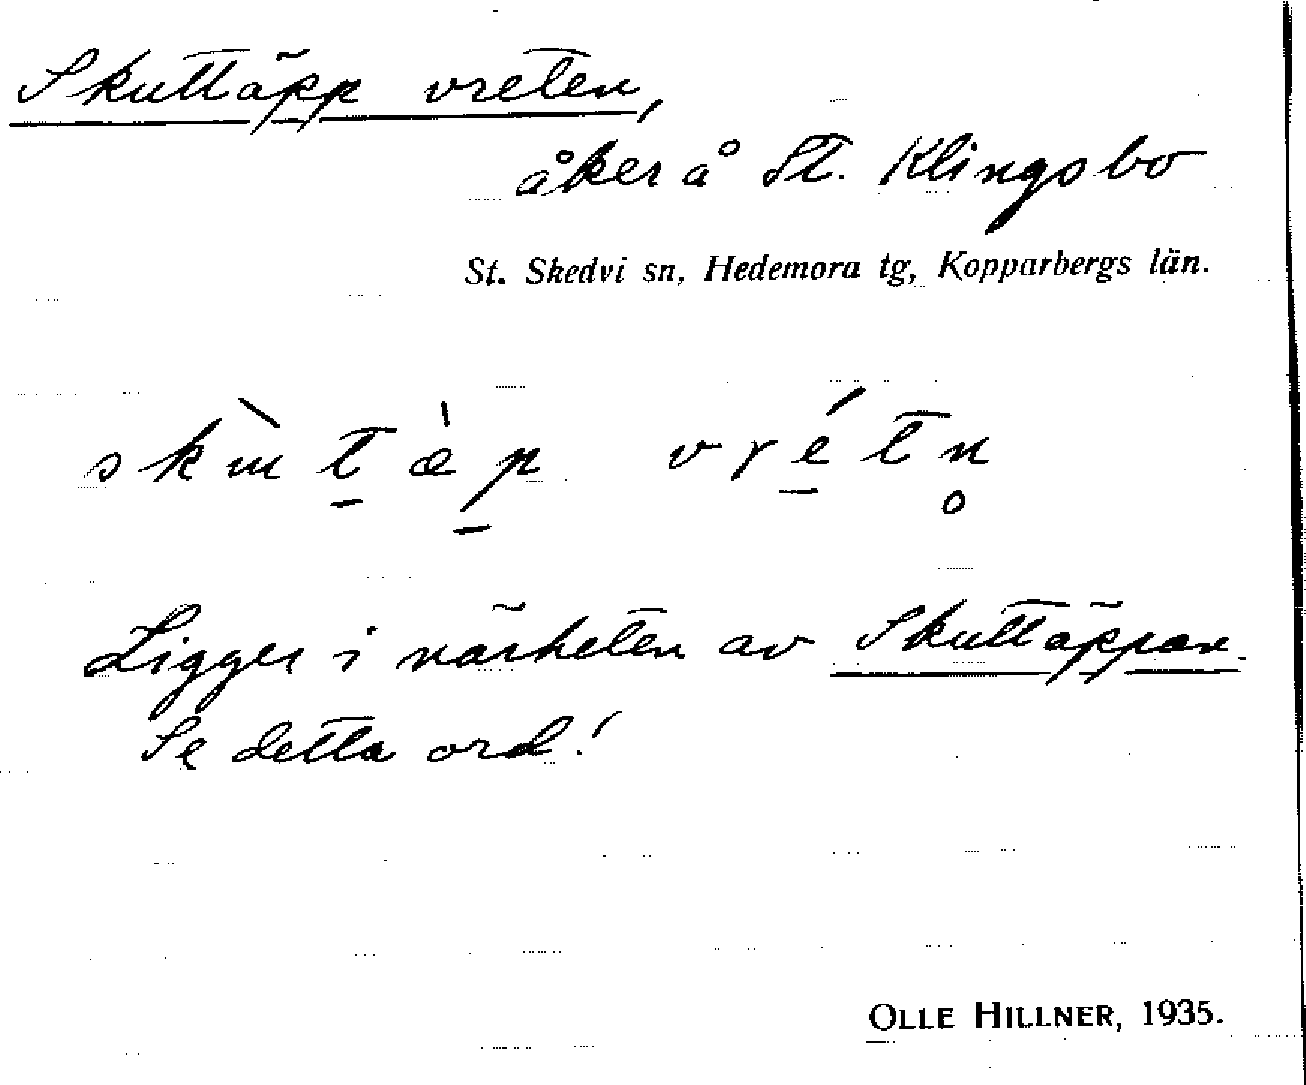 Skuttäpp vreten,
åker å St. Klingsbo
St. Skedvi sn, Hedemora tg, Kopparbergs län.
skùt̠æ̀p̠ vré̠tn̥
Ligger i närheten av Skuttäppan.
Se detta ord!
OLLE HILLNER, 1935.